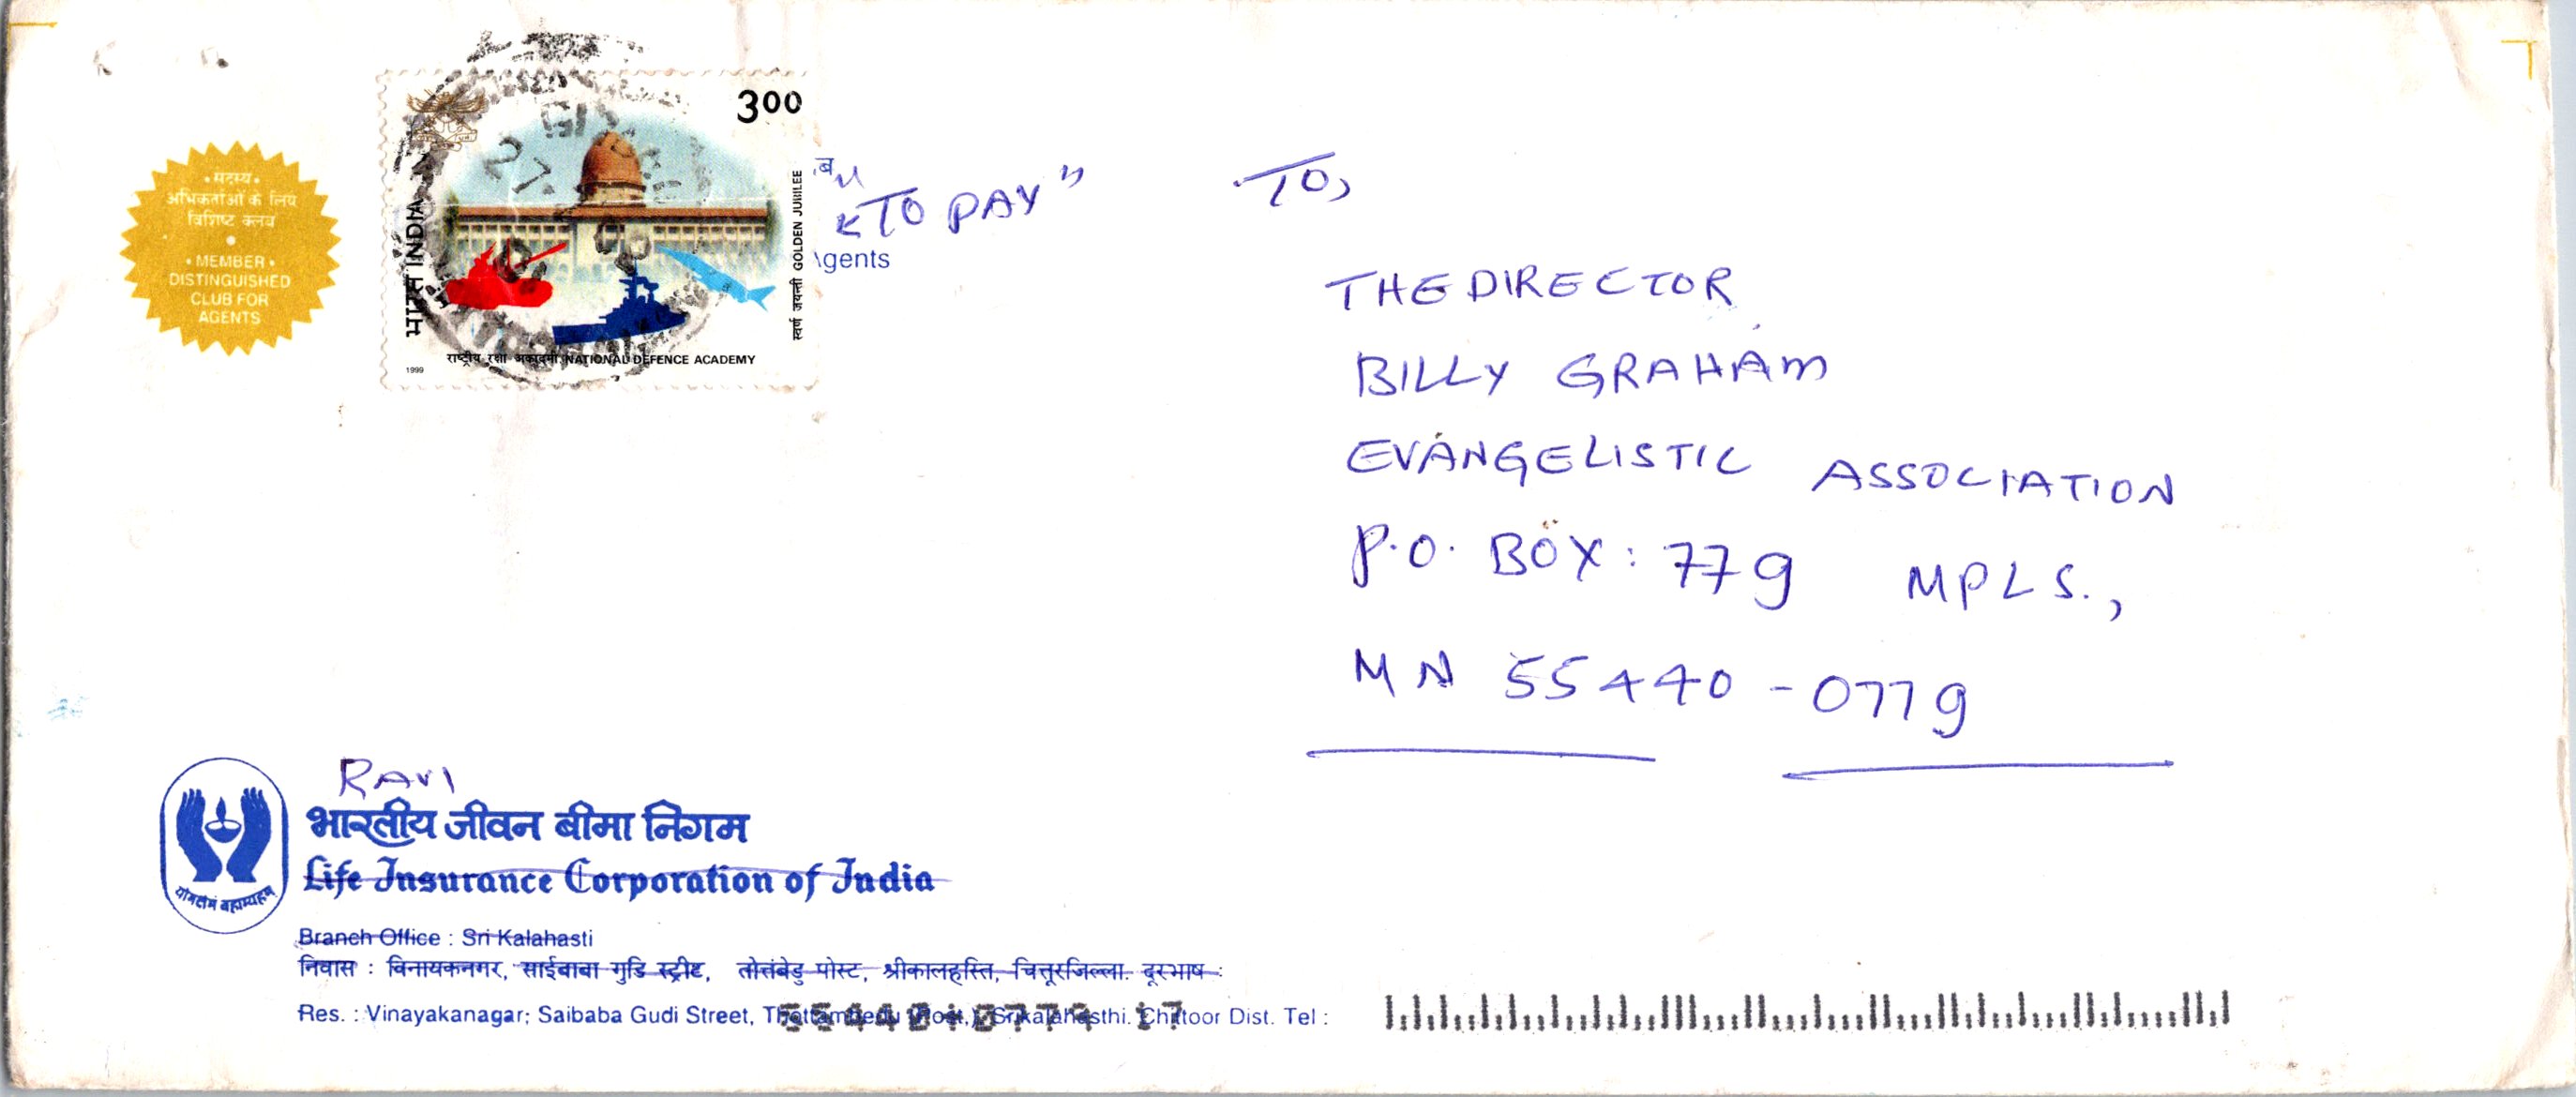 • सदस्य •
अभिकर्ताओं के लिय
विशिष्ट क्लब
• MEMBER •
DISTINGUISHED
CLUB FOR
AGENTS
300
भारत INDIA
स्वर्ण जयन्ती GOLDEN JUBILEE
राष्ट्रीय रक्षा अकादमी NATIONAL DEFENCE ACADEMY
1999
"TO PAY"
Agents
TO,
THE DIRECTOR
BILLY GRAHAM
EVANGELISTIC ASSOCIATION
P.O. BOX: 779 MPLS.,
MN 55440-0779
RAVI
भारतीय जीवन बीमा निगम
Life Insurance Corporation of India
योगक्षेमं वहाम्यहम्
Branch Office : Sri Kalahasti
निवास : विनायकनगर, साईबाबा गुडि स्ट्रीट, तोत्तंबेडु पोस्ट, श्रीकालहस्ति, चित्तूरजिल्ला. दूरभाष :
Res. : Vinayakanagar; Saibaba Gudi Street, Thottambedu (Post,) Srikalahasthi. Chittoor Dist. Tel :